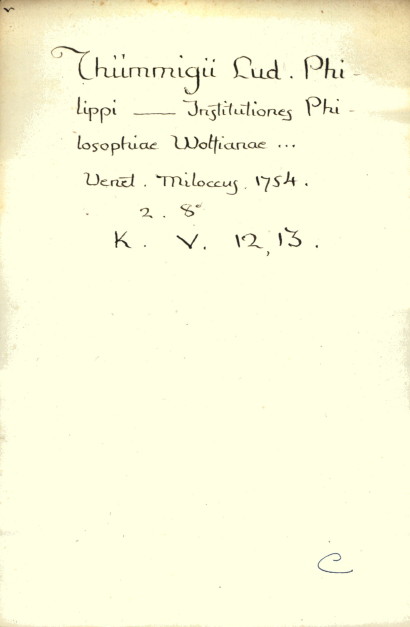 Thümmigii Lud. Phi-
lippi — Institutiones Phi-
losophiae Wolfianae ...
Venet. Miloccus. 1754.
2. 8°
K. V. 12, 13.
C